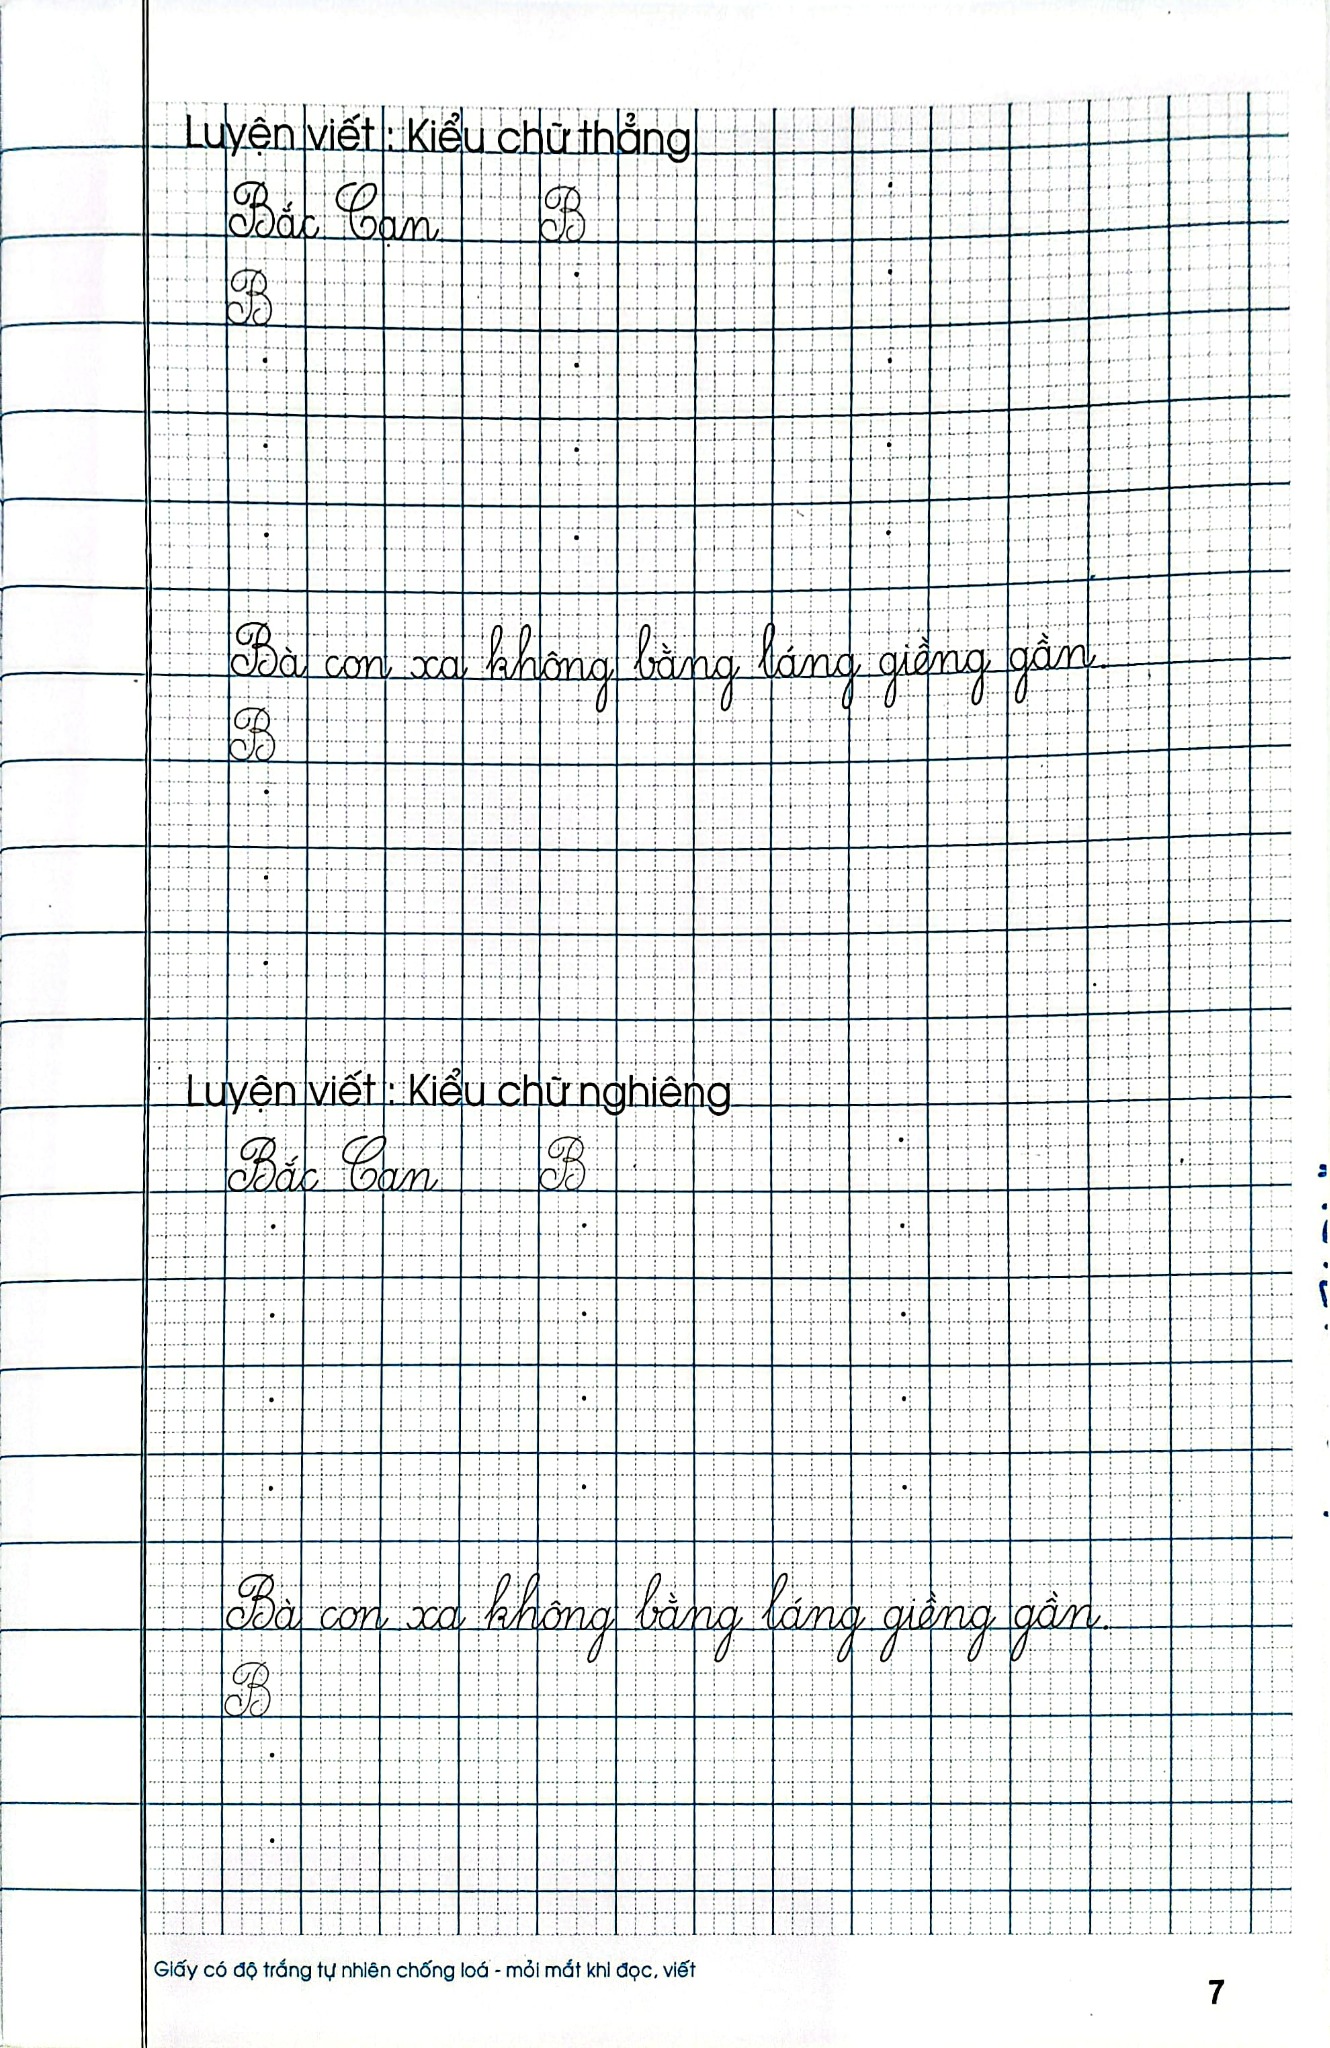 Luyện viết : Kiểu chữ thẳng
Bắc Cạn B
B
Bà con xa không bằng láng giềng gần.
B
Luyện viết : Kiểu chữ nghiêng
Bắc Cạn B
Bà con xa không bằng láng giềng gần.
B
Giấy có độ trắng tự nhiên chống loá - mỏi mắt khi đọc, viết
7